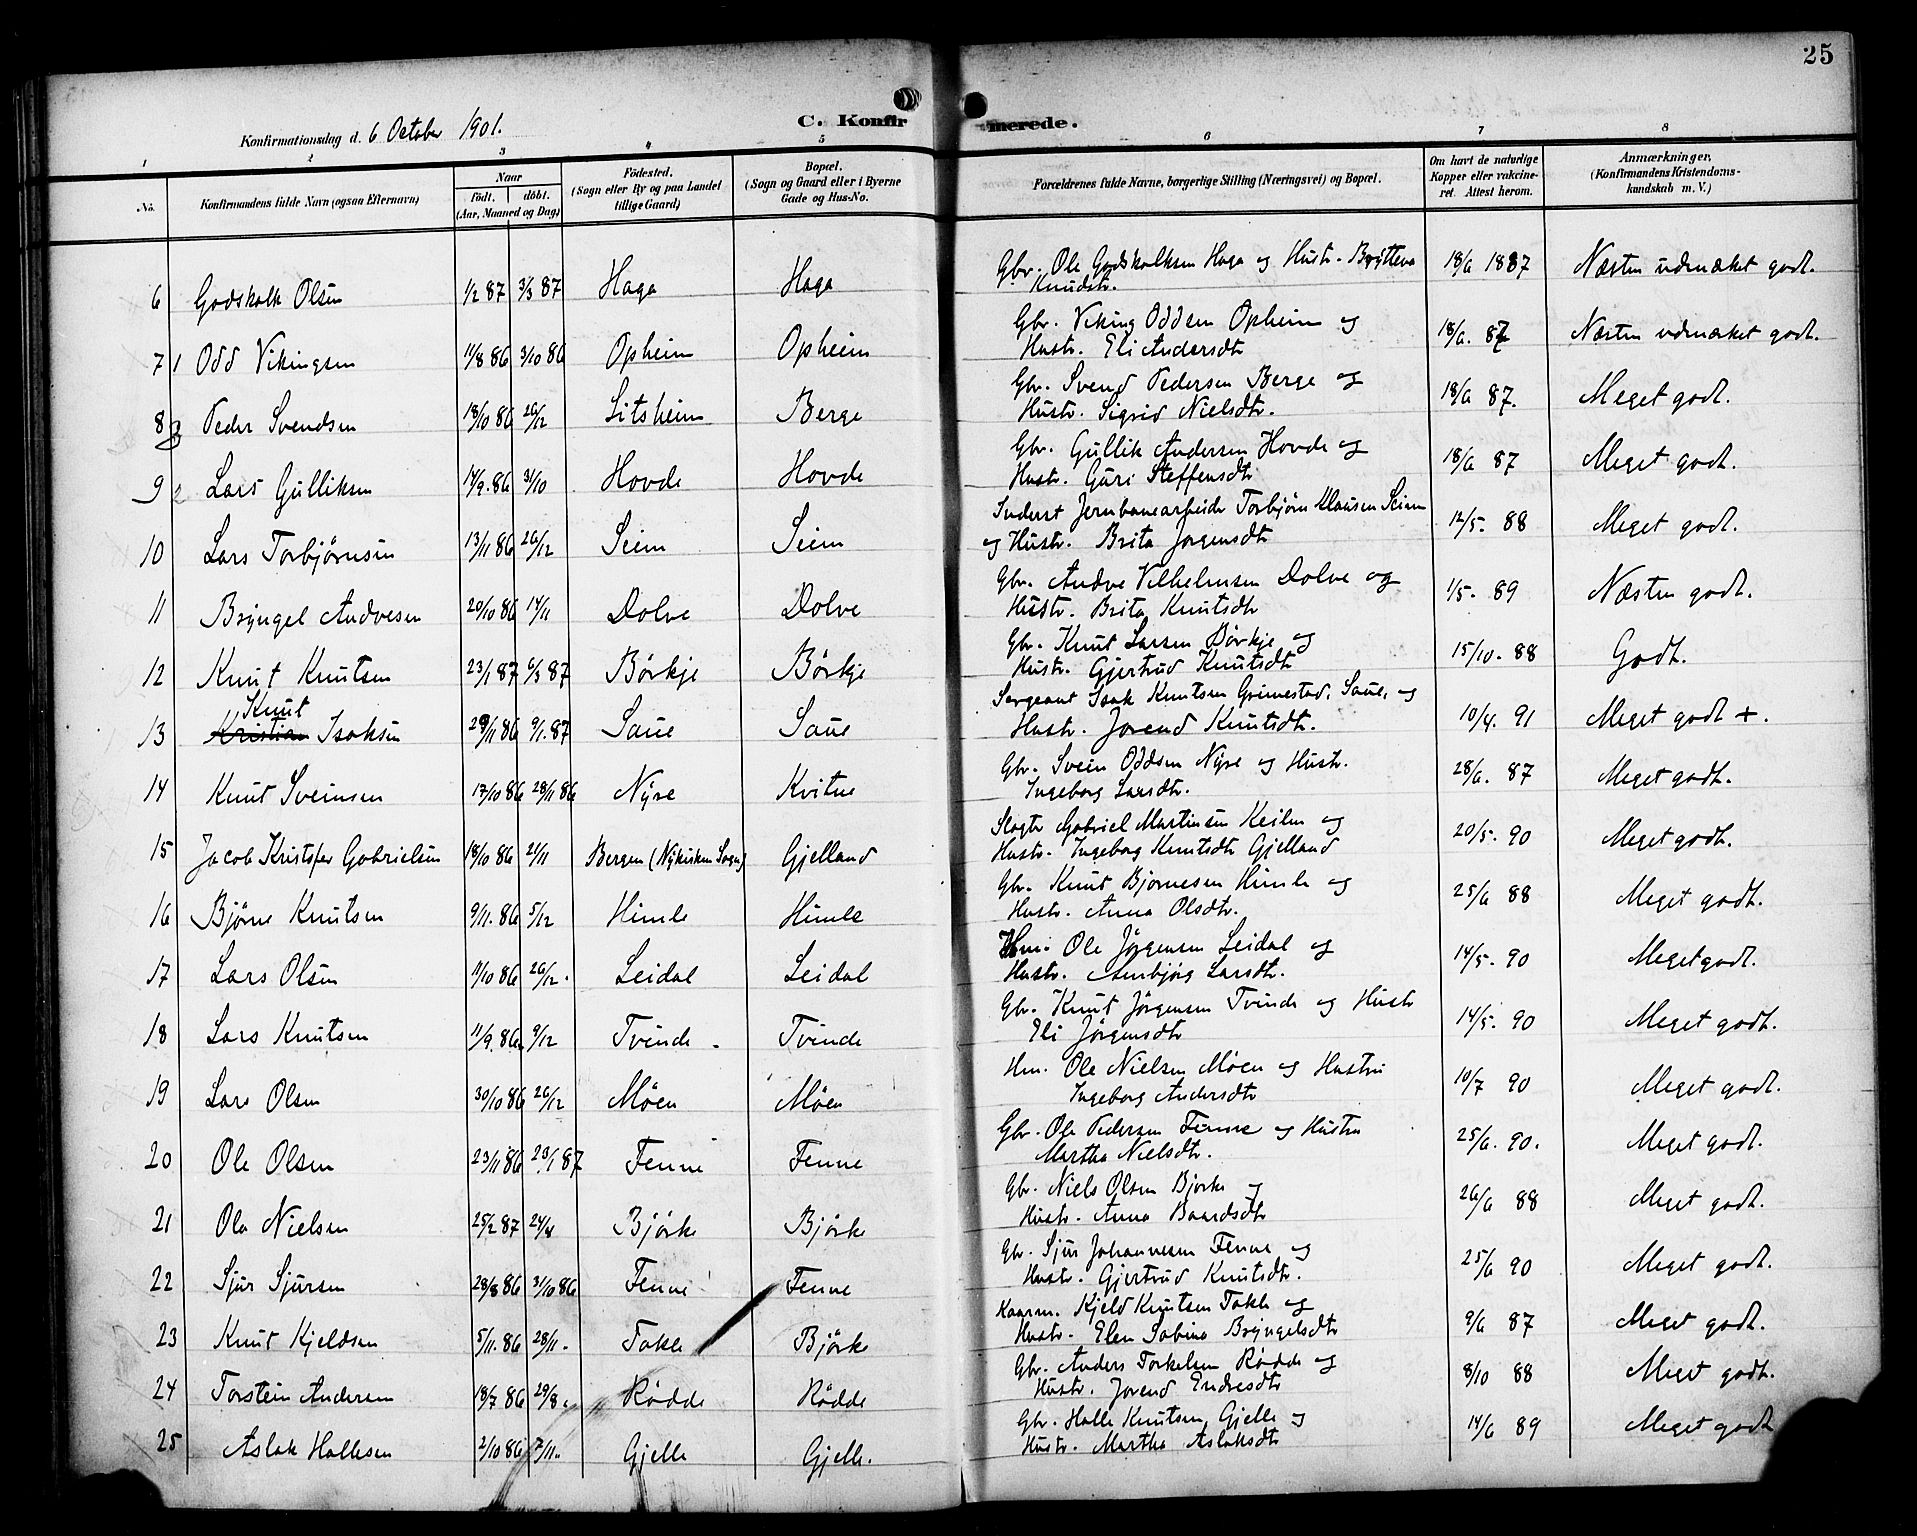 25
Konfirmationsdag d. 6 October 1901.
C. Konfirmerede.
1 2 3 4 5 6 7 8
No.
Konfirmandens fulde Navn (ogsaa Efternavn)
Naar
født. døbt.
(Aar, Maaned og Dag)
Födested.
(Sogn eller By og paa Landet
tillige Gaard)
Bopæl.
(Sogn og Gaard eller i Byerne
Gade og Hus-No.
Forældrenes fulde Navne, borgerlige Stilling (Næringsvei) og Bopæl.
Om havt de naturlige
Kopper eller vakcine-
ret. Attest herom.
Anmærkninger,
(Konfirmandens Kristendoms-
kundskab m. V.)
6 Godskalk Olsen 1/2 87 3/3 87 Haga Haga Gbr. Ole Godskalksen Haga og Hustr. Brytteva
Knudsdtr. 18/6 1887 Næsten udmæket godt.
7 1 Odd Vikingsen 11/8 86 3/10 86 Opheim Opheim Gbr. Viking Oddsen Opheim og
Hustr. Eli Andersdtr 18/6. 87 Næsten udmæket godt.
8 3 Peder Svendsen 18/10 86 26/12 Litsheim Berge Gbr. Svend Pedersen Berge og
Hustr. Sigrid Nielsdtr. 18/6 87. Meget godt.
9 2 Lars Gulliksen 14/9. 86 31/10 Hovde Hovde Gbr. Gullik Andersen Hovde og
Hustr. Guri Steffensdtr 18/6 87 Meget godt.
10 Lars Torbjørnsen 13/11 86 26/12 Seim Seim Inderst Jernbanearbeider Torbjörn Klausen Seim
og Hustr. Brita Jorgensdtr 12/5. 88 Meget godt.
11 Bryngel Andvesen 20/10 86 14/11 Dolve Dolve Gbr. Andve Vilhelmsen Dolve og
Hustr. Brita Knutsdtr 1/5. 89 Næsten godt.
12 Knut Knutsen 23/1 87 6/3 87 Børkje Børkje Gbr. Knut Larsen Børkje og
Hustr. Gjertrud Knutsdtr 15/10. 88 Godt.
Knut
13 Kristian Isaksen 29/11 86 9/1. 87 Saue Saue Sergeant Isak Knutsen Grimestad, Saue, og
Hustr. Jorend Knutsdtr. 10/4. 91 Meget godt +.
14 Knut Sveinsen 17/10 86 28/11 86 Nyre Kvitne Gbr. Svein Oddsen Nyre og Hustr.
Ingeborg Larsdtr. 28/6. 87 Meget godt.
15 Jacob Kristofer Gabrielsen 18/10 86 21/11 Bergen (Nykirken Sogn) Gjelland Slagter Gabriel Martinsen Keilen og
Hustr. Ingeborg Knutsdtr Gjelland 20/5. 90 Meget godt.
16 Bjørne Knutsen 9/11. 86 5/12 Himle Himle Gbr. Knut Bjørnesen Himle og
Hustr. Anna Olsdtr. 25/6 88 Meget godt.
17 Lars Olsen 11/10 86 26/12. Leidal Leidal Hm. Ole Jörgensen Leidal og
Hustr. Ambjörg Larsdtr. 14/5. 90 Meget godt.
18 Lars Knutsen 11/9. 86 9/12 Tvinde. Tvinde Gbr. Knut Jörgensen Tvinde og Hustr
Eli Jörgensdtr 14/5. 90 Meget godt.
19 Lars Olsen 30/10 86 26/12 Möen Möen Hm. Ole Nielsen Möen og Hustru
Ingeborg Andersdtr 10/7 90 Meget godt.
20 Ole Olsen 23/11 86 23/1 87 Fenne Fenne Gbr. Ole Pedersen Fenne og Hustru
Martha Nielsdtr. 25/6. 90. Meget godt.
21 Ola Nielsen 25/2 87 24/4 Björke Björke Gbr. Niels Olsen Bjorke og
Hustr. Anna Baardsdtr 26/6 88 Meget godt.
22 Sjur Sjursen 28/8 86 31/10 86 Fenne Fenne Gbr. Sjur Johannesen Fenne og
Hustr. Gjertrud Knutsdtr. 25/6 90 Meget godt.
23 Knut Kjeldsen 5/11. 86 28/11. Takle Björke Kaarm. Kjeld Knutsen Takle og
Hustr. Elen Sabina Bryngelsdtr 9/6 87 Meget godt.
24 Torstein Andersen 18/7 86 29/8. Rödde Rödde Gbr. Anders Torkelsen Rödde og
Hustr. Jorend Endresdtr 8/10 88 Meget godt.
25 Aslak Hallesen 2/10 86 7/11. Gjelle Gjelle. Gbr. Halle Knutsen Gjelle og
Hustr. Martha Aslaksdtr 14/6 89 Meget godt